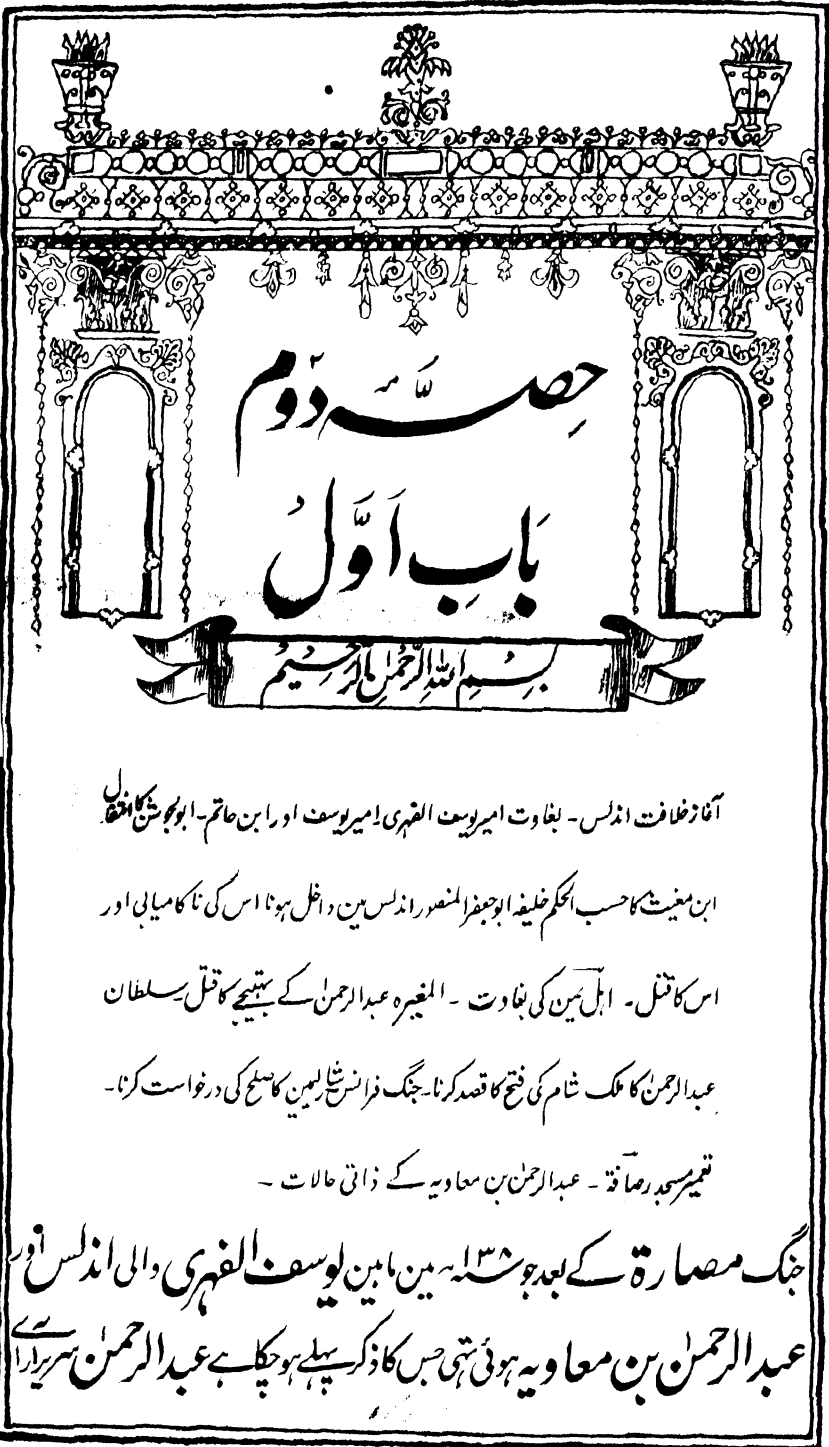 حِصّہ دوم
بَابِ اَوَّلْ
بِسْمِ اللّٰہِ الرَّحْمٰنِ الرَّحِیْمْ
آغاز خلافت اندلس۔ بغاوت امیر یوسف الفہری۔ امیر یوسف اور ابن حاتم۔ ابو الجوشن کا انتقال
ابن مغیث کا حسب الحکم خلیفہ ابو جعفر المنصور اندلس مین داخل ہونا اس کی ناکامیابی اور
اس کا قتل۔ اہل یمن کی بغاوت۔ المغیرہ عبدالرحمٰن کے بہتیجے کا قتل۔ سلطان
عبدالرحمٰن کا ملک شام کی فتح کا قصد کرنا۔ جنگ فرانس شارلیمین کا صلح کی درخواست کرنا۔
تعمیر مسجد رصافۃ۔ عبدالرحمٰن بن معاویہ کے ذاتی حالات۔
جنگ مصارۃ کے بعد جو ۱۳۸ھ مین مابین یوسف الفہری والی اندلس اور
عبدالرحمٰن بن معاویہ ہوئی تہی جس کا ذکر پہلے ہو چکا ہے عبدالرحمٰن سریرآرائے